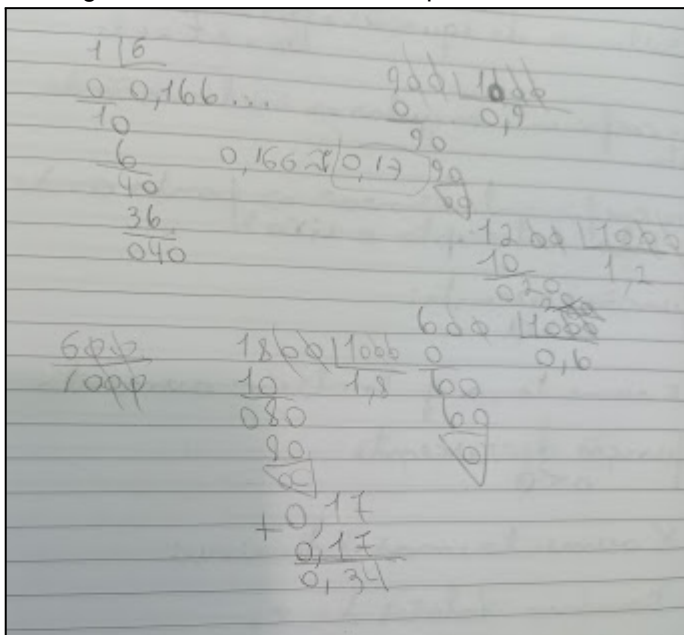 1 |6
0 0,166...
10
6
40
36
040
0,166 ≈ 0,17
900 | 1000
0 0,9
90
90
00
1200 | 1000
10 1,2
020
600
1000
1800 | 1000
10 1,8
080
80
00
600 | 1000
0 0,6
60
60
0
+ 0,17
0,17
0,34